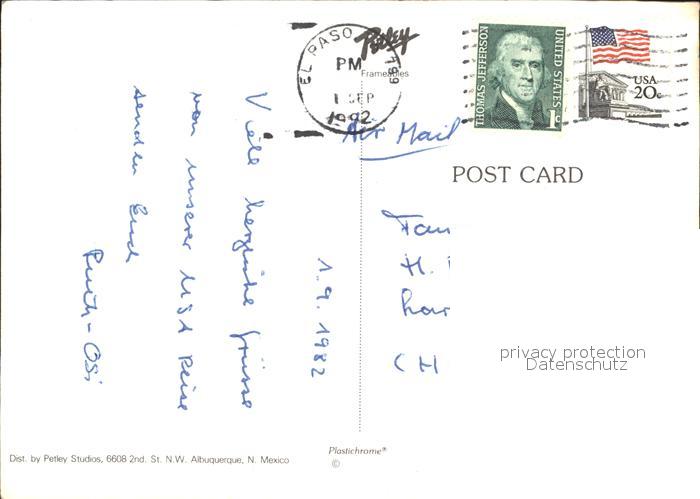 EL PASO
PM
1 SEP
1992
799
Petley
Frameables
THOMAS JEFFERSON
UNITED STATES
1c
USA
20c
Air Mail
POST CARD
1.9.1982
Viele herzliche Grüsse
von unserer USA Reise
senden Euch
Ruth - Osi
Fam
H.
CH
privacy protection
Datenschutz
Dist. by Petley Studios, 6608 2nd. St. N.W. Albuquerque, N. Mexico
Plastichrome®
©